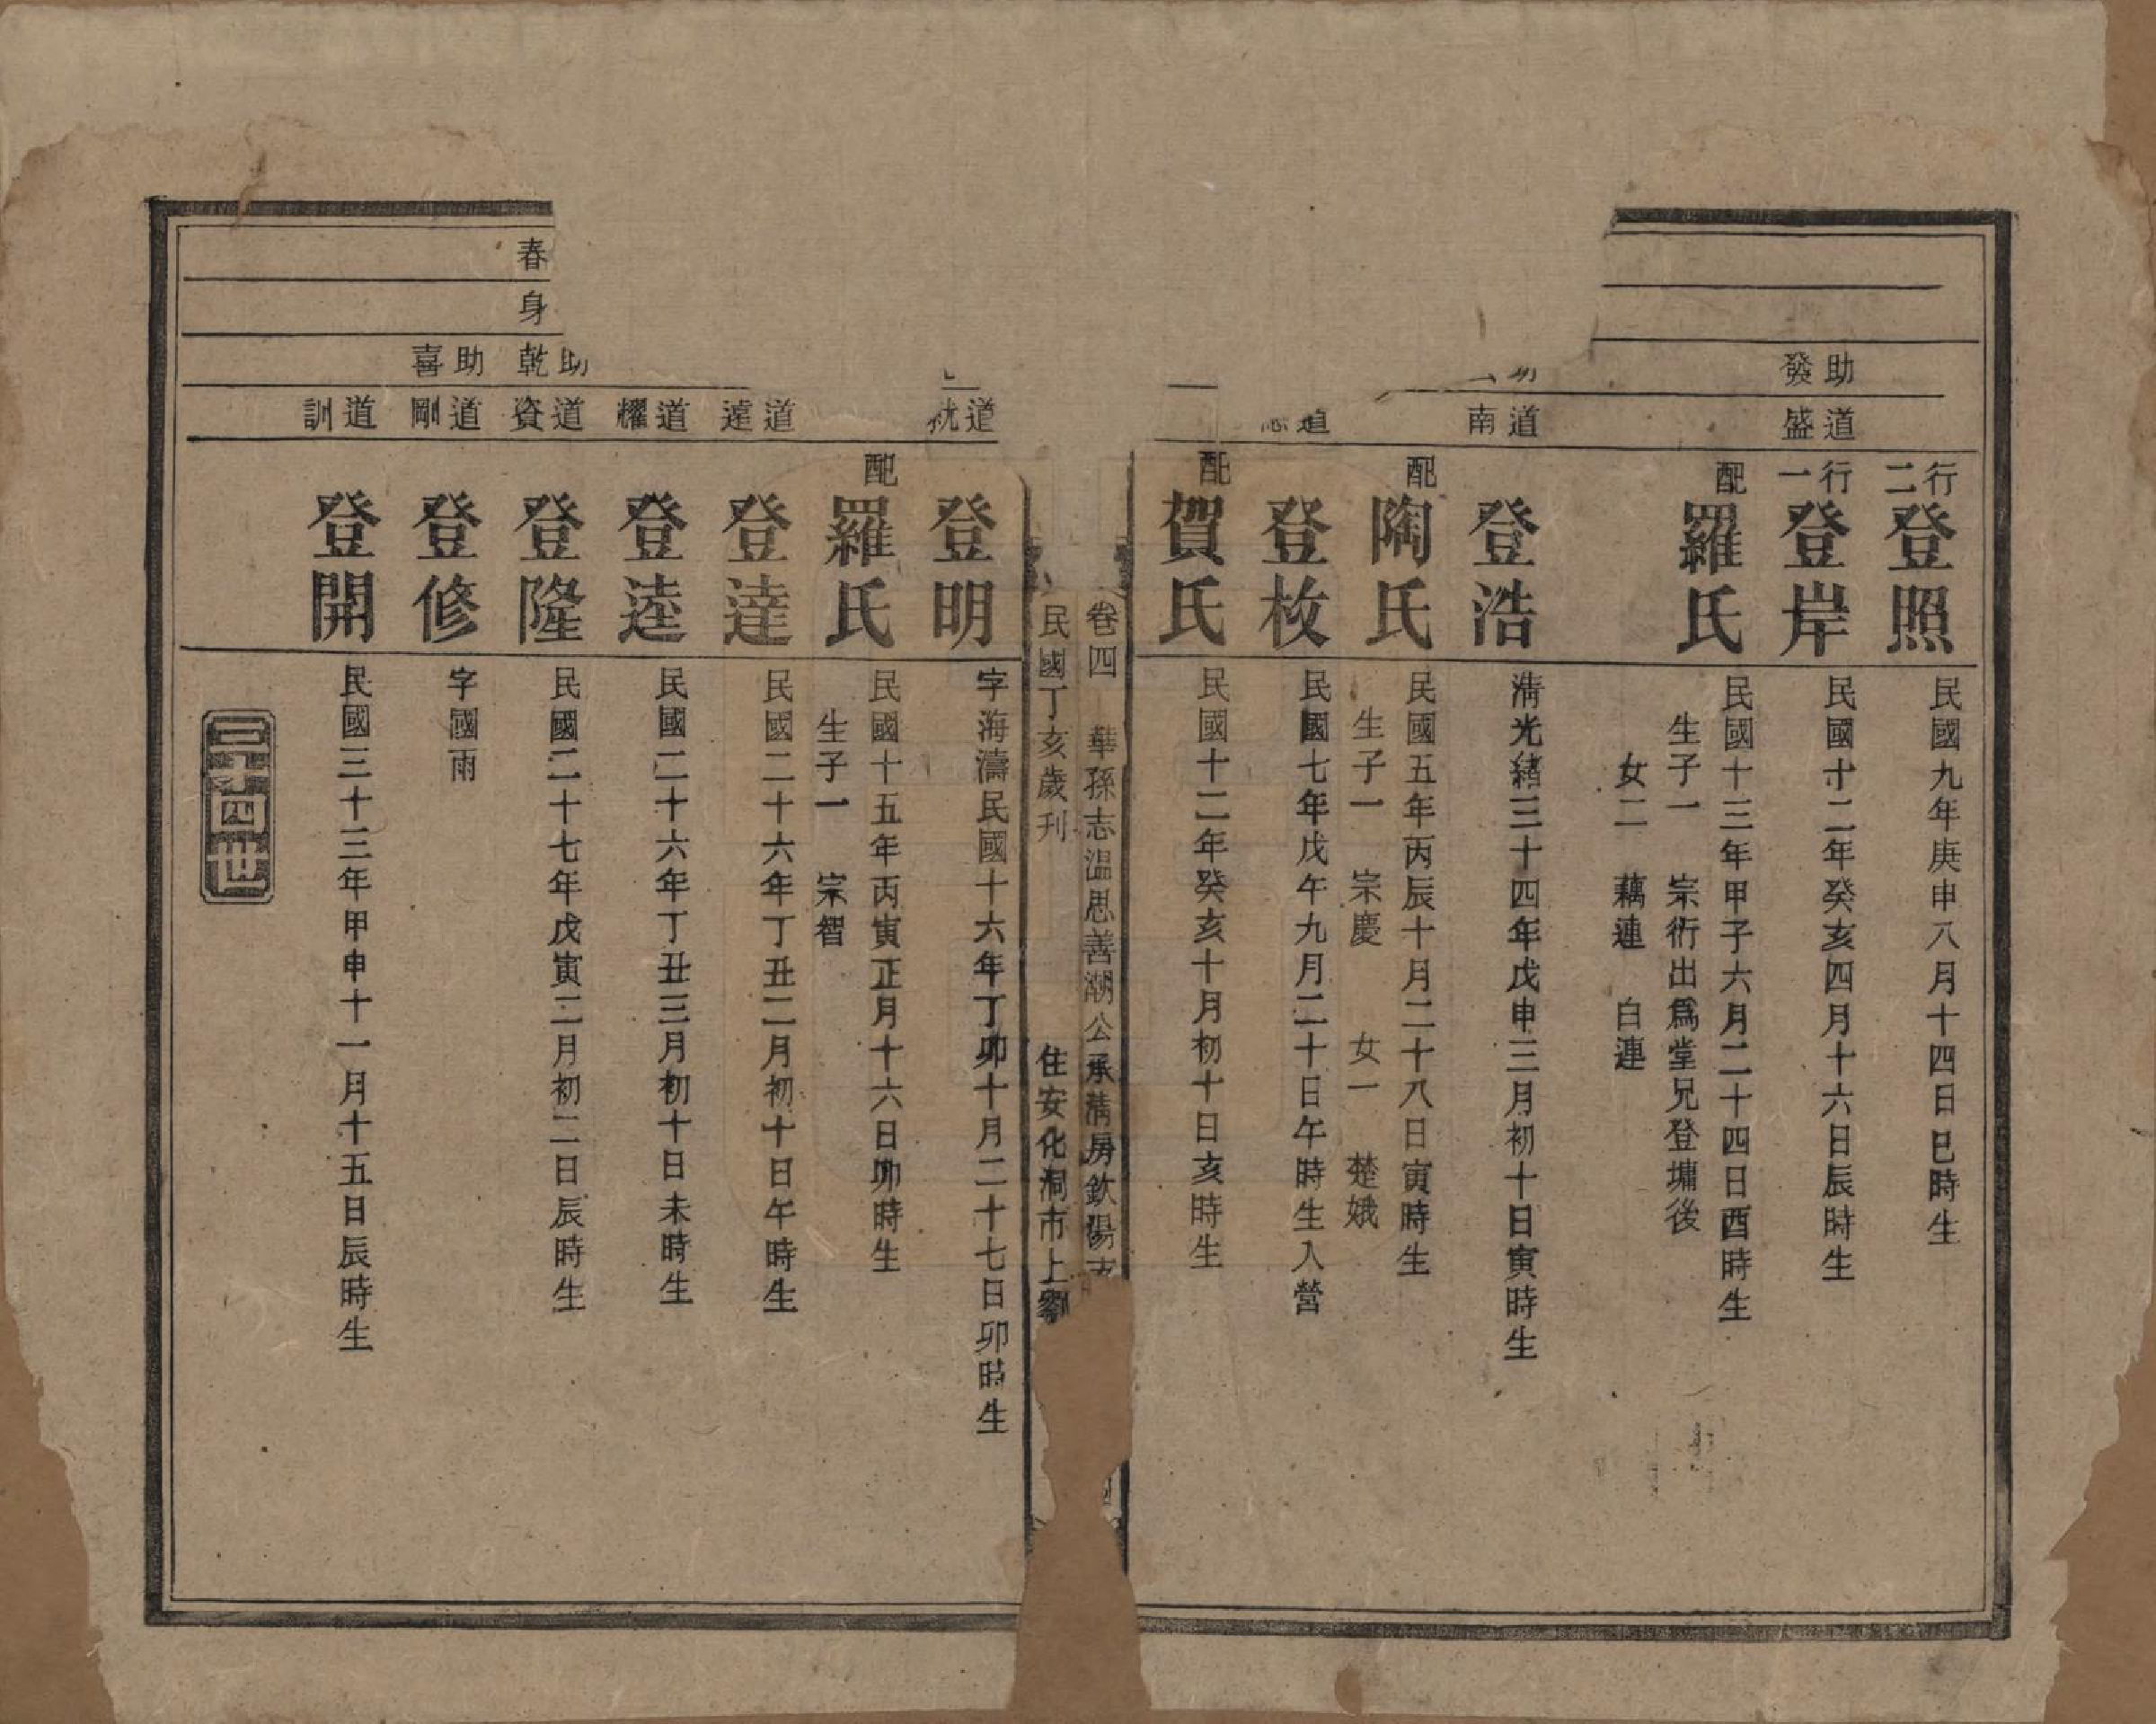 行二
登照
民國九年庚申八月十四日巳時生
助發
道盛
行一
登岸
民國十二年癸亥四月十六日辰時生
配
羅氏
民國十三年甲子六月二十四日酉時生
生子一 宗衍出爲堂兄登墉後
女二 藕連 白連
道南
登浩
清光緒三十四年戊申三月初十日寅時生
配
陶氏
民國五年丙辰十月二十八日寅時生
生子一 宗慶 女一 楚娥
道
登枚
民國七年戊午九月二十日午時生入營
配
賀氏
民國十二年癸亥十月初十日亥時生
卷四 華孫志溫思善湖公承清房欽陽支
民國丁亥歲刊 住安化洞市上劉
道就
登明
字海濤民國十六年丁卯十月二十七日卯時生
配
羅氏
民國十五年丙寅正月十六日卯時生
生子一 宗智
道遠
登達
民國二十六年丁丑二月初十日午時生
道耀
登逵
民國二十六年丁丑三月初十日未時生
春
身
助乾
道資
登隆
民國二十七年戊寅二月初二日辰時生
助喜
道剛
登修
字國雨
道訓
登開
民國三十三年甲申十一月十五日辰時生
三十四世